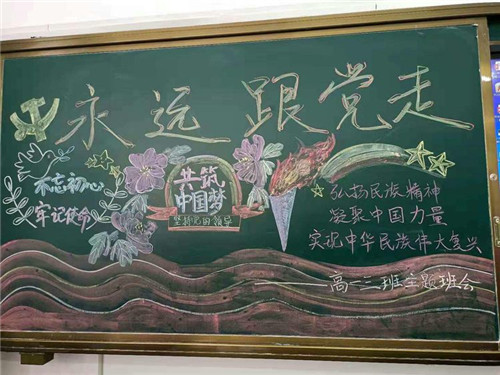 永远跟党走
不忘初心
牢记使命
共筑
中国梦
坚持党的领导
弘扬民族精神
凝聚中国力量
实现中华民族伟大复兴
——高一二班主题班会